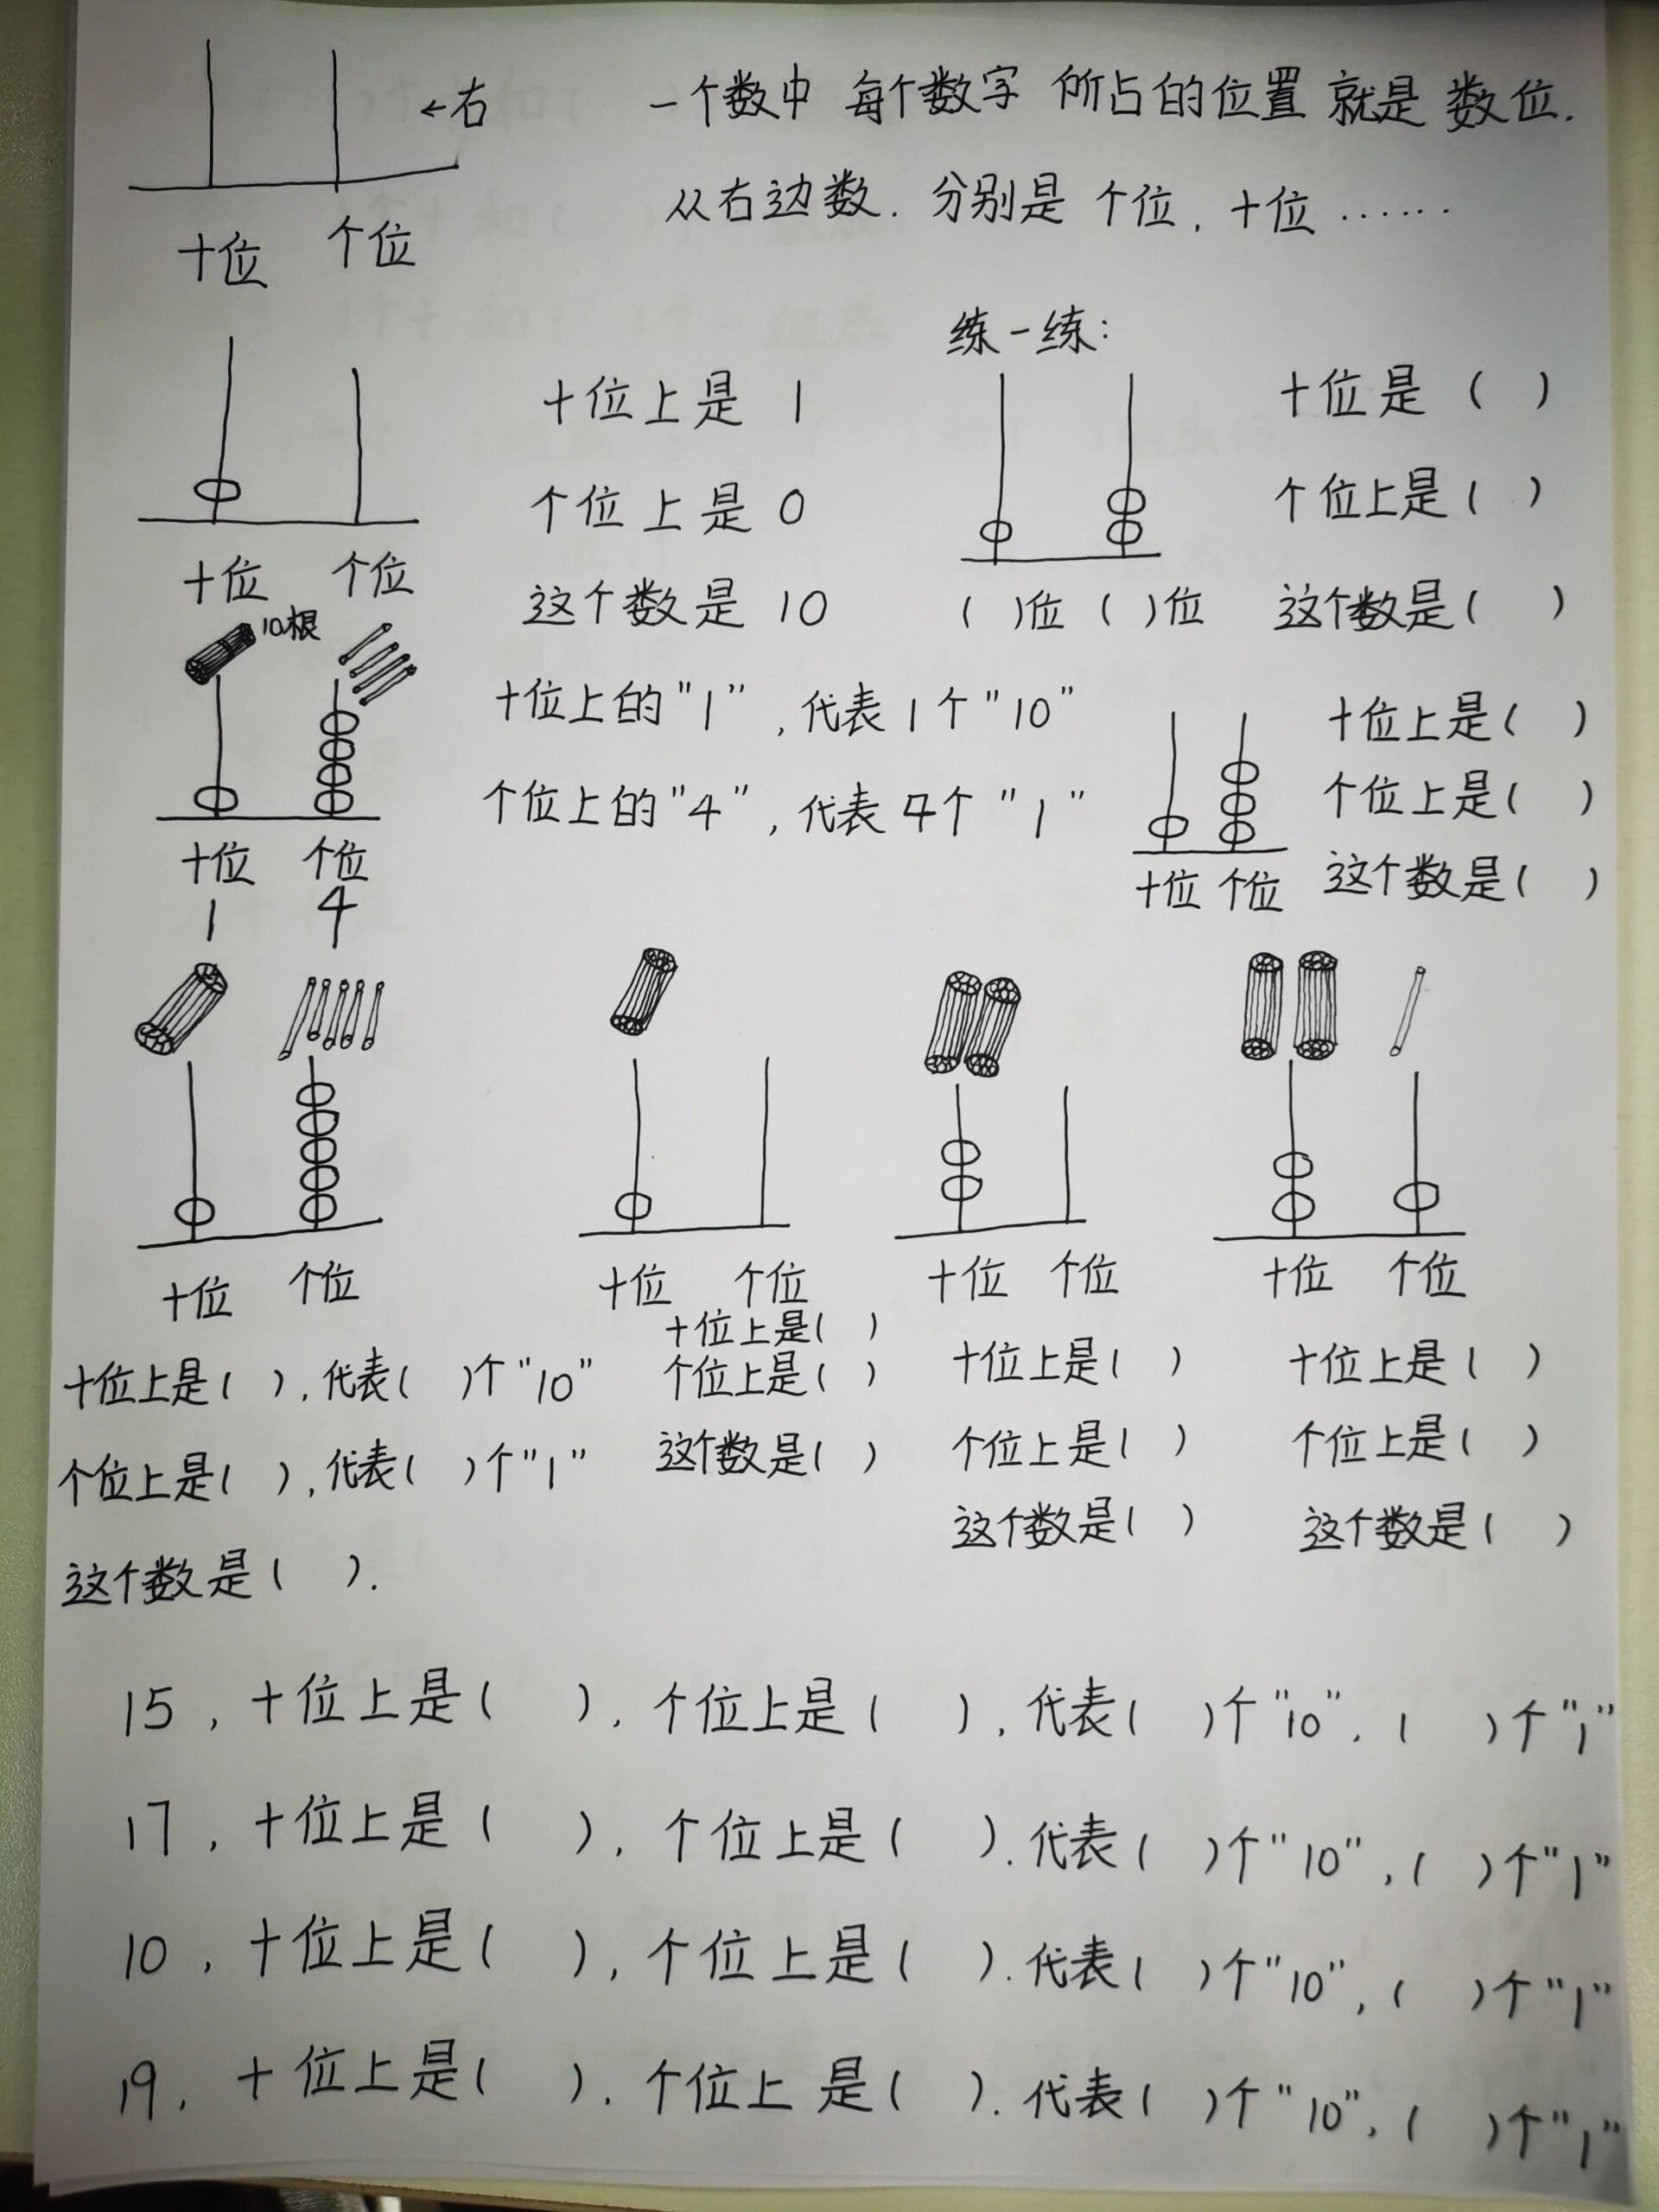 ←右
一个数中 每个数字 所占的位置 就是 数位.
从右边数. 分别是 个位, 十位 ......
十位 个位
十位上是 1
个位上是 0
这个数是 10
十位 个位
练一练:
十位是 ( )
个位上是 ( )
( )位 ( )位 这个数是 ( )
10根
十位上的"1", 代表 1个"10"
个位上的"4", 代表 4个"1"
十位 个位
1 4
十位上是( )
个位上是( )
这个数是( )
十位 个位
十位 个位
十位上是( ), 代表( )个"10"
个位上是( ), 代表( )个"1"
这个数是( ).
十位 个位
十位上是( )
个位上是( )
这个数是( )
十位 个位
十位上是( )
个位上是( )
这个数是( )
十位 个位
十位上是( )
个位上是( )
这个数是( )
15, 十位上是( ), 个位上是( ), 代表( )个"10", ( )个"1"
17, 十位上是( ), 个位上是( ). 代表( )个"10", ( )个"1"
10, 十位上是( ), 个位上是( ). 代表( )个"10", ( )个"1"
19, 十位上是( ). 个位上是( ). 代表( )个"10", ( )个"1"